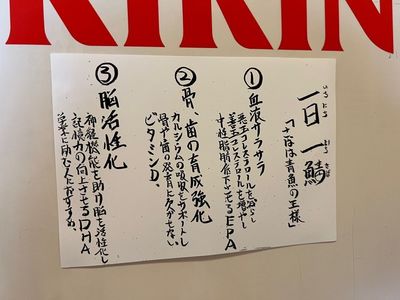 KIRIN
一日一鯖
いち にち いち さば
「さばは青魚の王様」
①血液サラサラ
悪玉コレステロールを減らし
善玉コレステロールを増やし
中性脂肪低下させるEPA
②骨、歯の育成強化
カルシウムの吸収をサポートし
骨や歯の発育に欠かせない
ビタミンD。
③脳活性化
神経機能を助け脳を活性化し
記憶力の向上させるDHA
学業に励む人におすすめ。